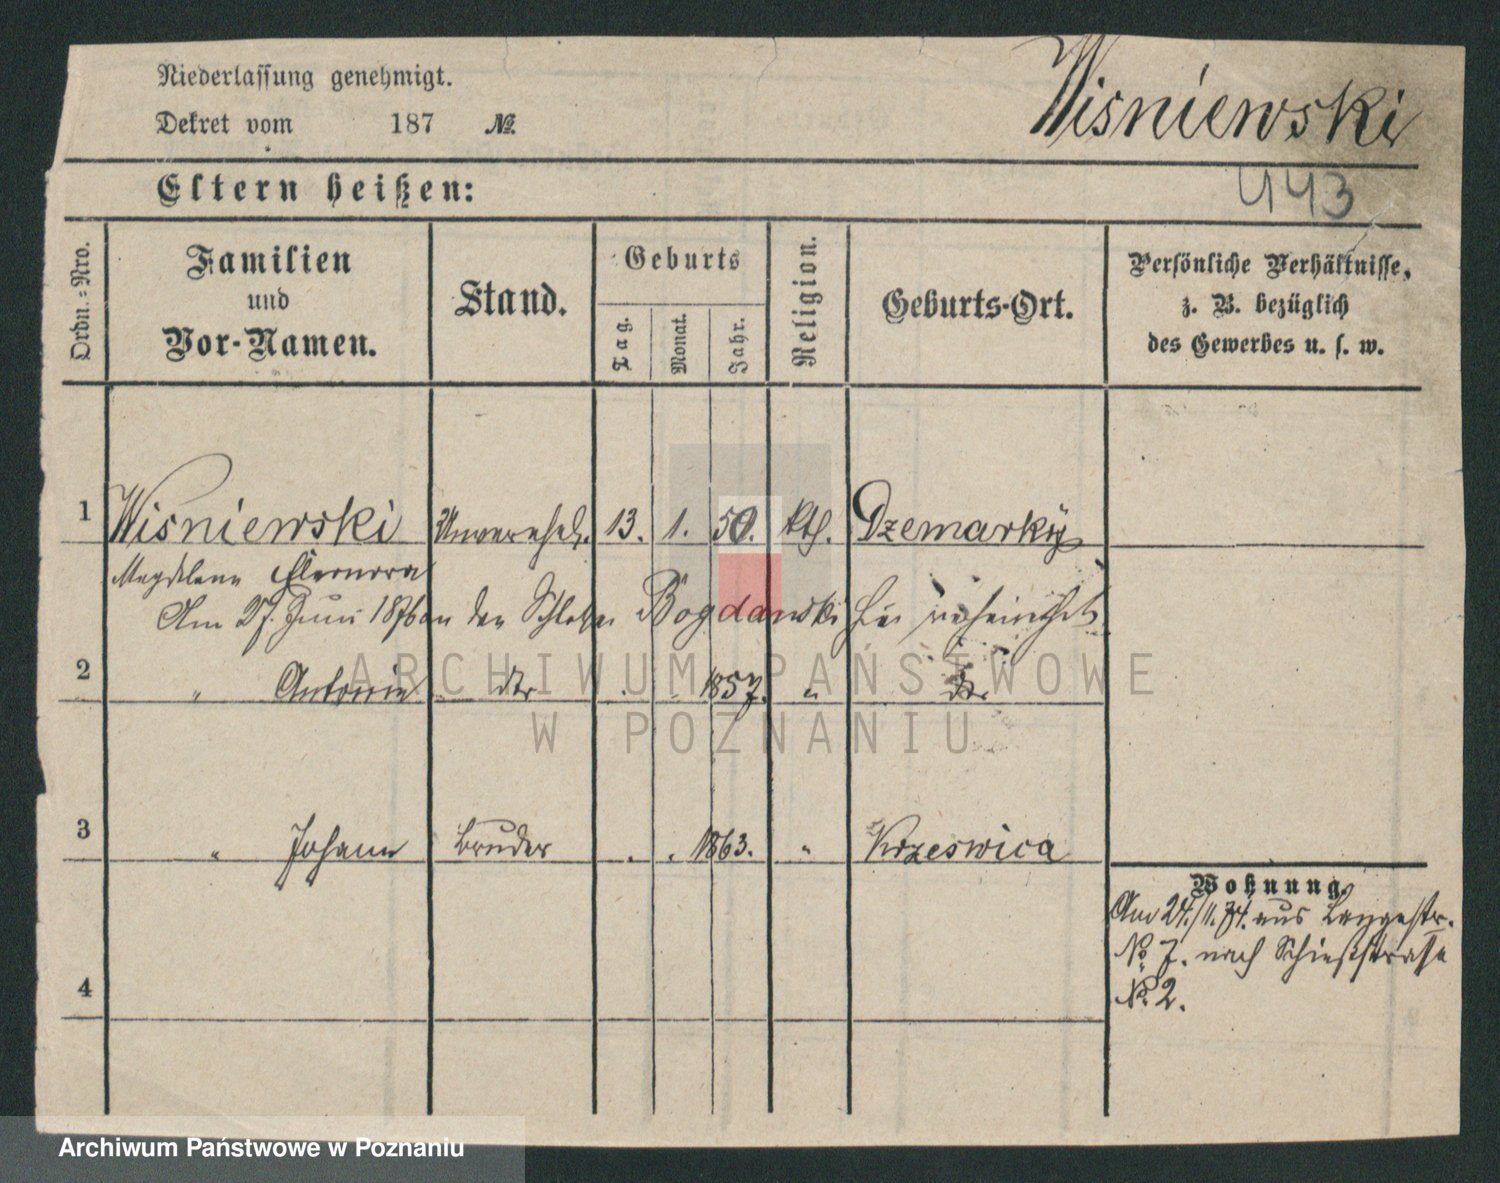 Niederlassung genehmigt.
Wisniewski
Dekret vom 187 №.
443
Eltern heißen:
Ordn.=Nro.
Familien
und
Vor-Namen.
Stand.
Geburts
Tag.
Monat.
Jahr.
Religion.
Geburts-Ort.
Persönliche Verhältnisse,
z. B. bezüglich
des Gewerbes u. s. w.
1 Wisniewski Unverehel. 13. 1. 50. kth.
Magdelena Eleonora
Am 27. Juni 1876 an den Bogdanski hier verheirathet
2 " Antonie dto . . 1857. " do.
ARCHIWUM PAŃSTWOWE
W POZNANIU
3 " Johann Bruder . . 1863. " Krzeswica
Wohnung.
Am 24./11.74. aus Langestr.
№ 7. nach Schießstrasse
№ 2.
4
Archiwum Państwowe w Poznaniu